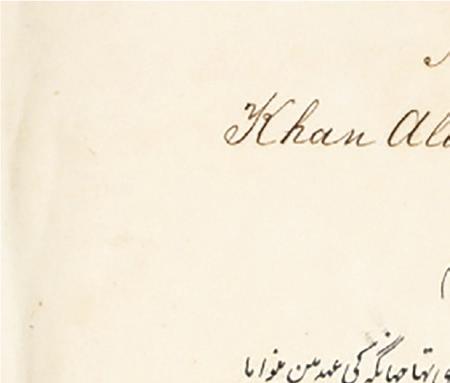 Khan Ala
تہا جہانگیر کی عہد مین بنوایا